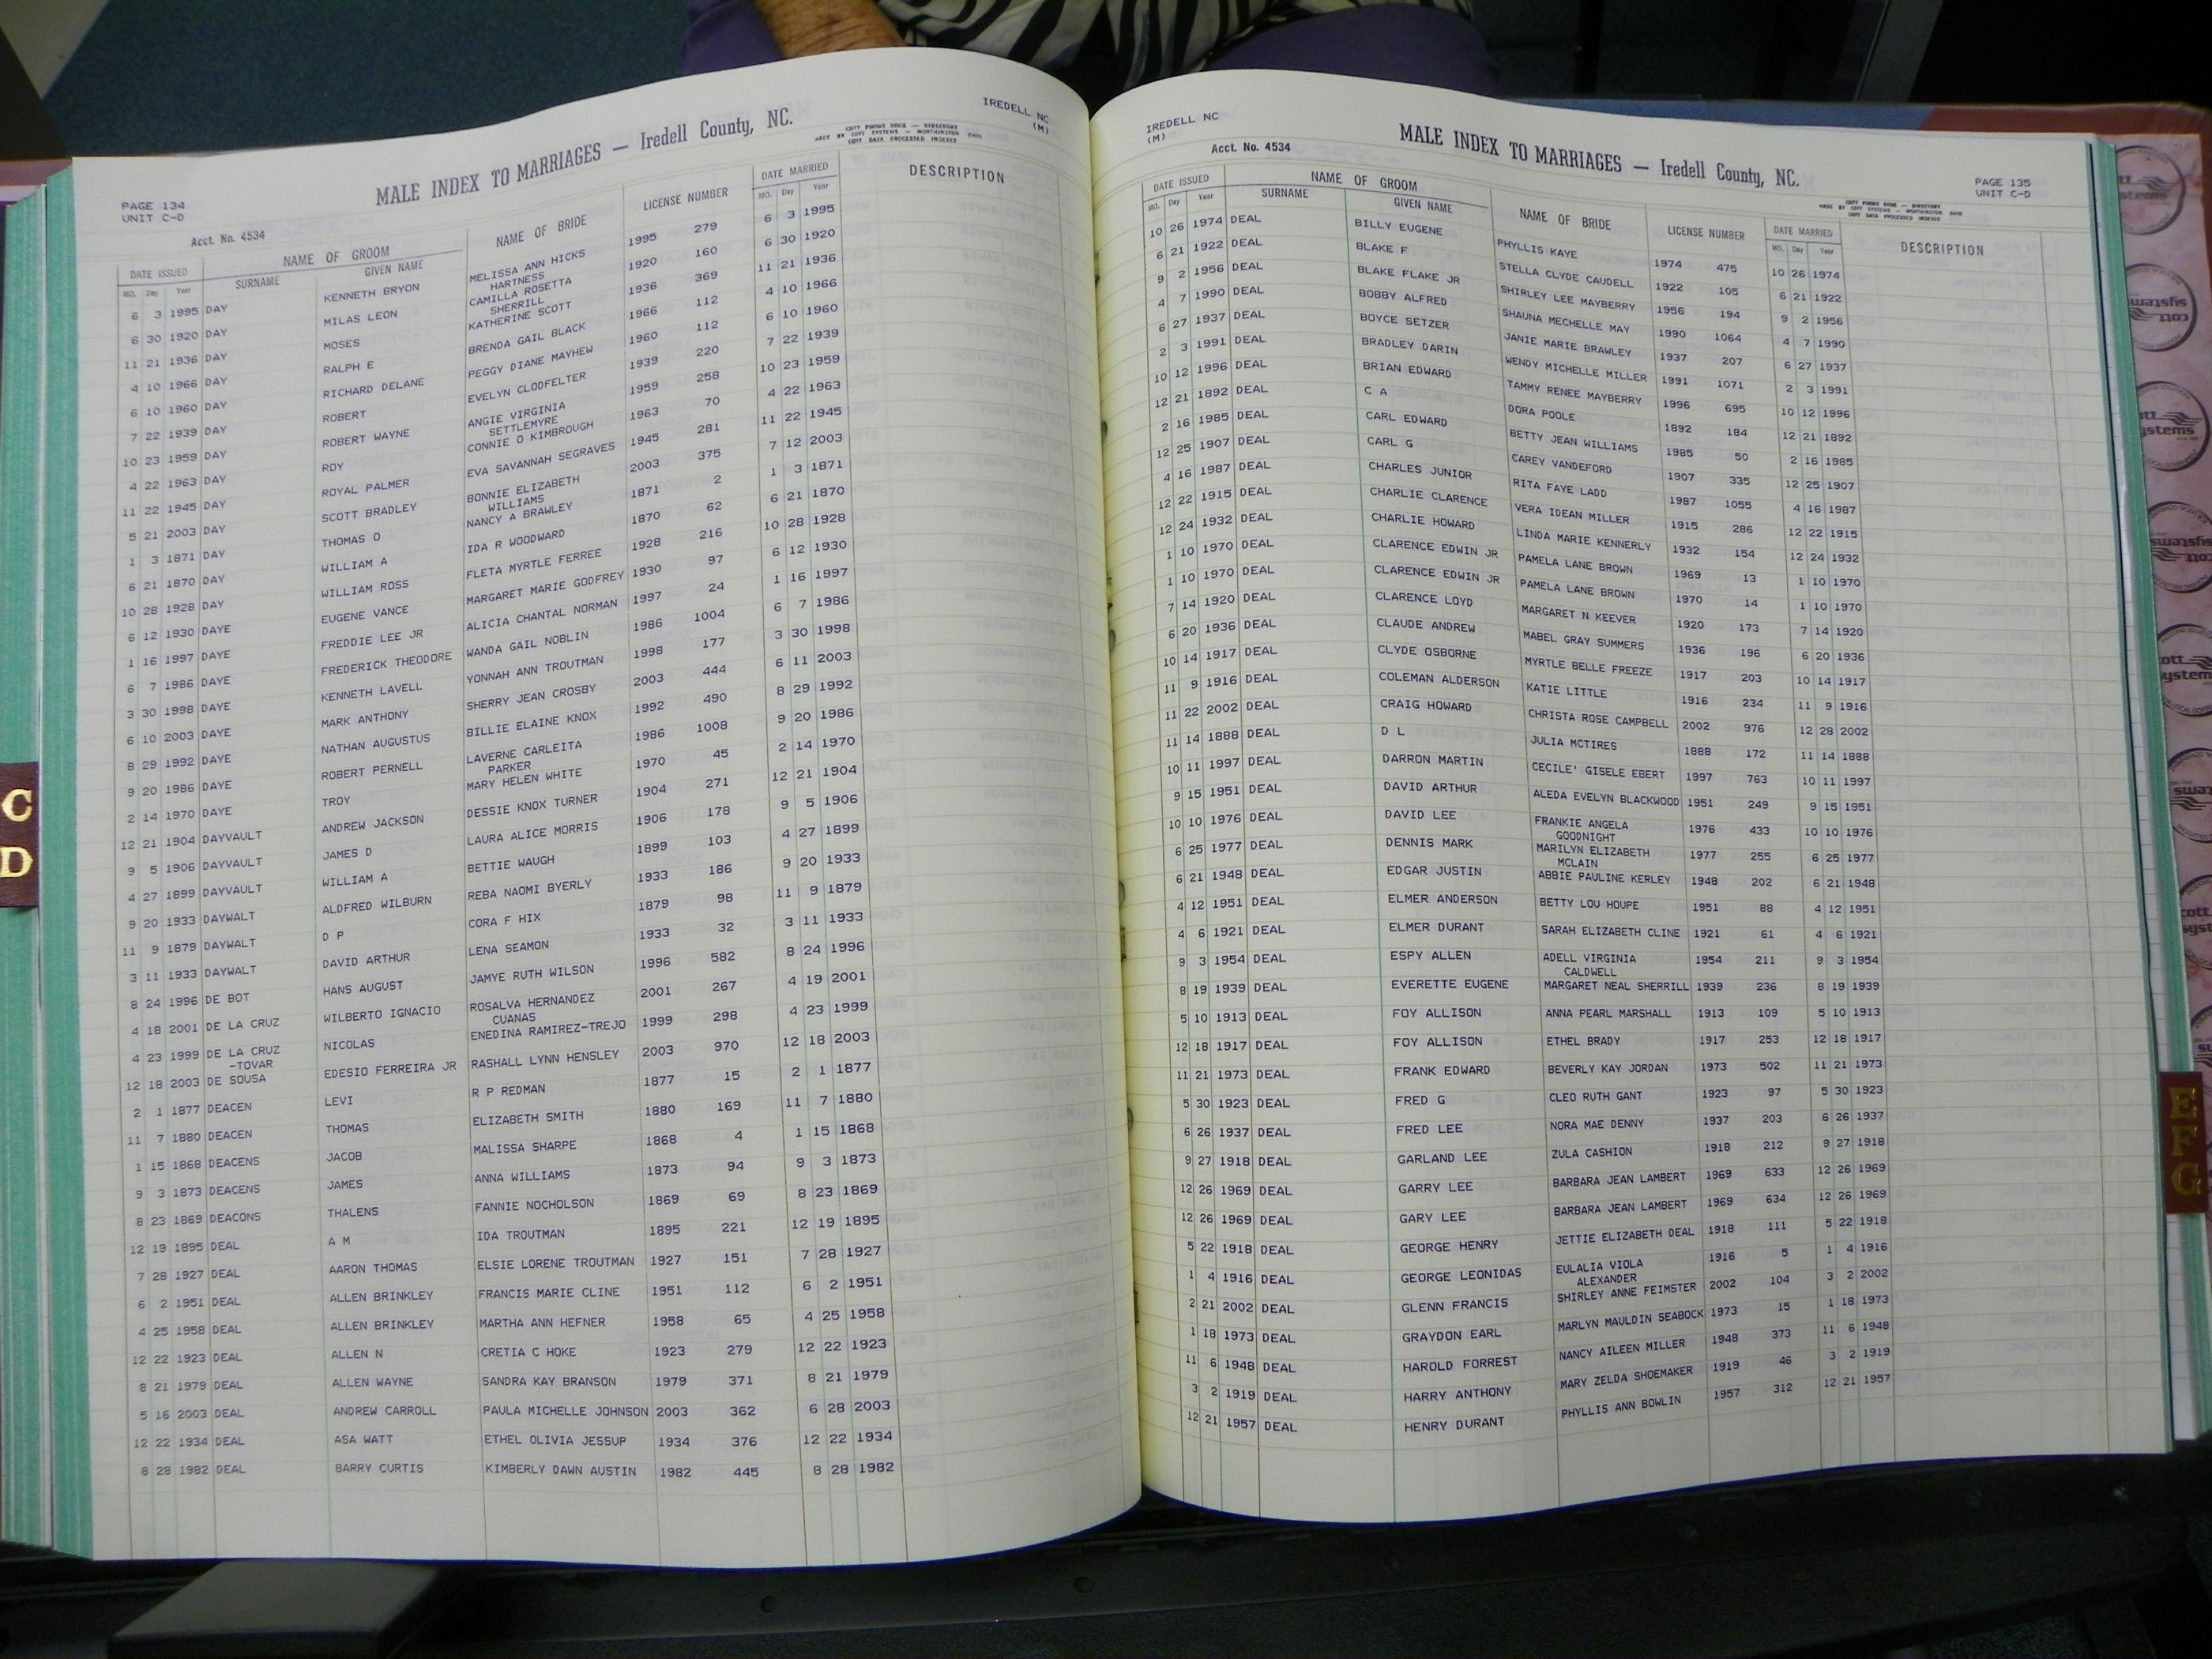 IREDELL NC
(M)
MALE INDEX TO MARRIAGES — Iredell County, NC.
COTT PHONO DOGE — DIRECTORY
MADE BY COTT SYSTEMS — WORTHINGTON OHIO
COTT DATA PROCESSED INDEXES
PAGE 134
UNIT C-D
Acct. No. 4534
DATE ISSUED NAME OF GROOM NAME OF BRIDE LICENSE NUMBER DATE MARRIED DESCRIPTION
MO. Day Year SURNAME GIVEN NAME MO. Day Year
6 3 1995 DAY KENNETH BRYON MELISSA ANN HICKS 1995 279 6 3 1995
HARTNESS
6 30 1920 DAY MILAS LEON CAMILLA ROSETTA 1920 160 6 30 1920
SHERRILL
11 21 1936 DAY MOSES KATHERINE SCOTT 1936 369 11 21 1936
4 10 1966 DAY RALPH E BRENDA GAIL BLACK 1966 112 4 10 1966
6 10 1960 DAY RICHARD DELANE PEGGY DIANE MAYHEW 1960 112 6 10 1960
7 22 1939 DAY ROBERT EVELYN CLODFELTER 1939 220 7 22 1939
10 23 1959 DAY ROBERT WAYNE ANGIE VIRGINIA 1959 258 10 23 1959
SETTLEMYRE
4 22 1963 DAY ROY CONNIE O KIMBROUGH 1963 70 4 22 1963
11 22 1945 DAY ROYAL PALMER EVA SAVANNAH SEGRAVES 1945 281 11 22 1945
5 21 2003 DAY SCOTT BRADLEY BONNIE ELIZABETH 2003 375 7 12 2003
WILLIAMS
1 3 1871 DAY THOMAS O NANCY A BRAWLEY 1871 2 1 3 1871
6 21 1870 DAY WILLIAM A IDA R WOODWARD 1870 62 6 21 1870
10 28 1928 DAY WILLIAM ROSS FLETA MYRTLE FERREE 1928 216 10 28 1928
6 12 1930 DAYE EUGENE VANCE MARGARET MARIE GODFREY 1930 97 6 12 1930
1 16 1997 DAYE FREDDIE LEE JR ALICIA CHANTAL NORMAN 1997 24 1 16 1997
6 7 1986 DAYE FREDERICK THEODORE WANDA GAIL NOBLIN 1986 1004 6 7 1986
3 30 1998 DAYE KENNETH LAVELL YONNAH ANN TROUTMAN 1998 177 3 30 1998
6 10 2003 DAYE MARK ANTHONY SHERRY JEAN CROSBY 2003 444 6 11 2003
8 29 1992 DAYE NATHAN AUGUSTUS BILLIE ELAINE KNOX 1992 490 8 29 1992
9 20 1986 DAYE ROBERT PERNELL LAVERNE CARLEITA 1986 1008 9 20 1986
PARKER
2 14 1970 DAYE TROY MARY HELEN WHITE 1970 45 2 14 1970
12 21 1904 DAYVAULT ANDREW JACKSON DESSIE KNOX TURNER 1904 271 12 21 1904
9 5 1906 DAYVAULT JAMES D LAURA ALICE MORRIS 1906 178 9 5 1906
4 27 1899 DAYVAULT WILLIAM A BETTIE WAUGH 1899 103 4 27 1899
9 20 1933 DAYWALT ALDFRED WILBURN REBA NAOMI BYERLY 1933 186 9 20 1933
11 9 1879 DAYWALT D P CORA F HIX 1879 98 11 9 1879
3 11 1933 DAYWALT DAVID ARTHUR LENA SEAMON 1933 32 3 11 1933
8 24 1996 DE BOT HANS AUGUST JAMYE RUTH WILSON 1996 582 8 24 1996
4 18 2001 DE LA CRUZ WILBERTO IGNACIO ROSALVA HERNANDEZ 2001 267 4 19 2001
CUANAS
4 23 1999 DE LA CRUZ NICOLAS ENEDINA RAMIREZ-TREJO 1999 298 4 23 1999
-TOVAR
12 18 2003 DE SOUSA EDESIO FERREIRA JR RASHALL LYNN HENSLEY 2003 970 12 18 2003
2 1 1877 DEACEN LEVI R P REDMAN 1877 15 2 1 1877
11 7 1880 DEACEN THOMAS ELIZABETH SMITH 1880 169 11 7 1880
1 15 1868 DEACENS JACOB MALISSA SHARPE 1868 4 1 15 1868
9 3 1873 DEACENS JAMES ANNA WILLIAMS 1873 94 9 3 1873
8 23 1869 DEACONS THALENS FANNIE NOCHOLSON 1869 69 8 23 1869
12 19 1895 DEAL A M IDA TROUTMAN 1895 221 12 19 1895
7 28 1927 DEAL AARON THOMAS ELSIE LORENE TROUTMAN 1927 151 7 28 1927
6 2 1951 DEAL ALLEN BRINKLEY FRANCIS MARIE CLINE 1951 112 6 2 1951
4 25 1958 DEAL ALLEN BRINKLEY MARTHA ANN HEFNER 1958 65 4 25 1958
12 22 1923 DEAL ALLEN N CRETIA C HOKE 1923 279 12 22 1923
8 21 1979 DEAL ALLEN WAYNE SANDRA KAY BRANSON 1979 371 8 21 1979
5 16 2003 DEAL ANDREW CARROLL PAULA MICHELLE JOHNSON 2003 362 6 28 2003
12 22 1934 DEAL ASA WATT ETHEL OLIVIA JESSUP 1934 376 12 22 1934
8 28 1982 DEAL BARRY CURTIS KIMBERLY DAWN AUSTIN 1982 445 8 28 1982
C
D
IREDELL NC
(M)
Acct. No. 4534
MALE INDEX TO MARRIAGES — Iredell County, NC.
PAGE 135
UNIT C-D
DATE ISSUED NAME OF GROOM NAME OF BRIDE LICENSE NUMBER DATE MARRIED DESCRIPTION
MO. Day Year SURNAME GIVEN NAME MO. Day Year
10 26 1974 DEAL BILLY EUGENE PHYLLIS KAYE 1974 475 10 26 1974
6 21 1922 DEAL BLAKE F STELLA CLYDE CAUDELL 1922 105 6 21 1922
9 2 1956 DEAL BLAKE FLAKE JR SHIRLEY LEE MAYBERRY 1956 194 9 2 1956
4 7 1990 DEAL BOBBY ALFRED SHAUNA MECHELLE MAY 1990 1064 4 7 1990
6 27 1937 DEAL BOYCE SETZER JANIE MARIE BRAWLEY 1937 207 6 27 1937
2 3 1991 DEAL BRADLEY DARIN WENDY MICHELLE MILLER 1991 1071 2 3 1991
10 12 1996 DEAL BRIAN EDWARD TAMMY RENEE MAYBERRY 1996 695 10 12 1996
12 21 1892 DEAL C A DORA POOLE 1892 184 12 21 1892
2 16 1985 DEAL CARL EDWARD BETTY JEAN WILLIAMS 1985 50 2 16 1985
12 25 1907 DEAL CARL G CAREY VANDEFORD 1907 335 12 25 1907
4 16 1987 DEAL CHARLES JUNIOR RITA FAYE LADD 1987 1055 4 16 1987
12 22 1915 DEAL CHARLIE CLARENCE VERA IDEAN MILLER 1915 286 12 22 1915
12 24 1932 DEAL CHARLIE HOWARD LINDA MARIE KENNERLY 1932 154 12 24 1932
1 10 1970 DEAL CLARENCE EDWIN JR PAMELA LANE BROWN 1969 13 1 10 1970
1 10 1970 DEAL CLARENCE EDWIN JR PAMELA LANE BROWN 1970 14 1 10 1970
7 14 1920 DEAL CLARENCE LOYD MARGARET N KEEVER 1920 173 7 14 1920
6 20 1936 DEAL CLAUDE ANDREW MABEL GRAY SUMMERS 1936 196 6 20 1936
10 14 1917 DEAL CLYDE OSBORNE MYRTLE BELLE FREEZE 1917 203 10 14 1917
11 9 1916 DEAL COLEMAN ALDERSON KATIE LITTLE 1916 234 11 9 1916
11 22 2002 DEAL CRAIG HOWARD CHRISTA ROSE CAMPBELL 2002 976 12 28 2002
11 14 1888 DEAL D L JULIA MCTIRES 1888 172 11 14 1888
10 11 1997 DEAL DARRON MARTIN CECILE' GISELE EBERT 1997 763 10 11 1997
9 15 1951 DEAL DAVID ARTHUR ALEDA EVELYN BLACKWOOD 1951 249 9 15 1951
10 10 1976 DEAL DAVID LEE FRANKIE ANGELA 1976 433 10 10 1976
GOODNIGHT
6 25 1977 DEAL DENNIS MARK MARILYN ELIZABETH 1977 255 6 25 1977
MCLAIN
6 21 1948 DEAL EDGAR JUSTIN ABBIE PAULINE KERLEY 1948 202 6 21 1948
4 12 1951 DEAL ELMER ANDERSON BETTY LOU HOUPE 1951 88 4 12 1951
4 6 1921 DEAL ELMER DURANT SARAH ELIZABETH CLINE 1921 61 4 6 1921
9 3 1954 DEAL ESPY ALLEN ADELL VIRGINIA 1954 211 9 3 1954
CALDWELL
8 19 1939 DEAL EVERETTE EUGENE MARGARET NEAL SHERRILL 1939 236 8 19 1939
5 10 1913 DEAL FOY ALLISON ANNA PEARL MARSHALL 1913 109 5 10 1913
12 18 1917 DEAL FOY ALLISON ETHEL BRADY 1917 253 12 18 1917
11 21 1973 DEAL FRANK EDWARD BEVERLY KAY JORDAN 1973 502 11 21 1973
5 30 1923 DEAL FRED G CLEO RUTH GANT 1923 97 5 30 1923
6 26 1937 DEAL FRED LEE NORA MAE DENNY 1937 203 6 26 1937
9 27 1918 DEAL GARLAND LEE ZULA CASHION 1918 212 9 27 1918
12 26 1969 DEAL GARRY LEE BARBARA JEAN LAMBERT 1969 633 12 26 1969
12 26 1969 DEAL GARY LEE BARBARA JEAN LAMBERT 1969 634 12 26 1969
5 22 1918 DEAL GEORGE HENRY JETTIE ELIZABETH DEAL 1918 111 5 22 1918
1 4 1916 DEAL GEORGE LEONIDAS EULALIA VIOLA 1916 5 1 4 1916
ALEXANDER
2 21 2002 DEAL GLENN FRANCIS SHIRLEY ANNE FEIMSTER 2002 104 3 2 2002
1 18 1973 DEAL GRAYDON EARL MARLYN MAULDIN SEABOCK 1973 15 1 18 1973
11 6 1948 DEAL HAROLD FORREST NANCY AILEEN MILLER 1948 373 11 6 1948
3 2 1919 DEAL HARRY ANTHONY MARY ZELDA SHOEMAKER 1919 46 3 2 1919
12 21 1957 DEAL HENRY DURANT PHYLLIS ANN BOWLIN 1957 312 12 21 1957
E
F
G
cott
systems